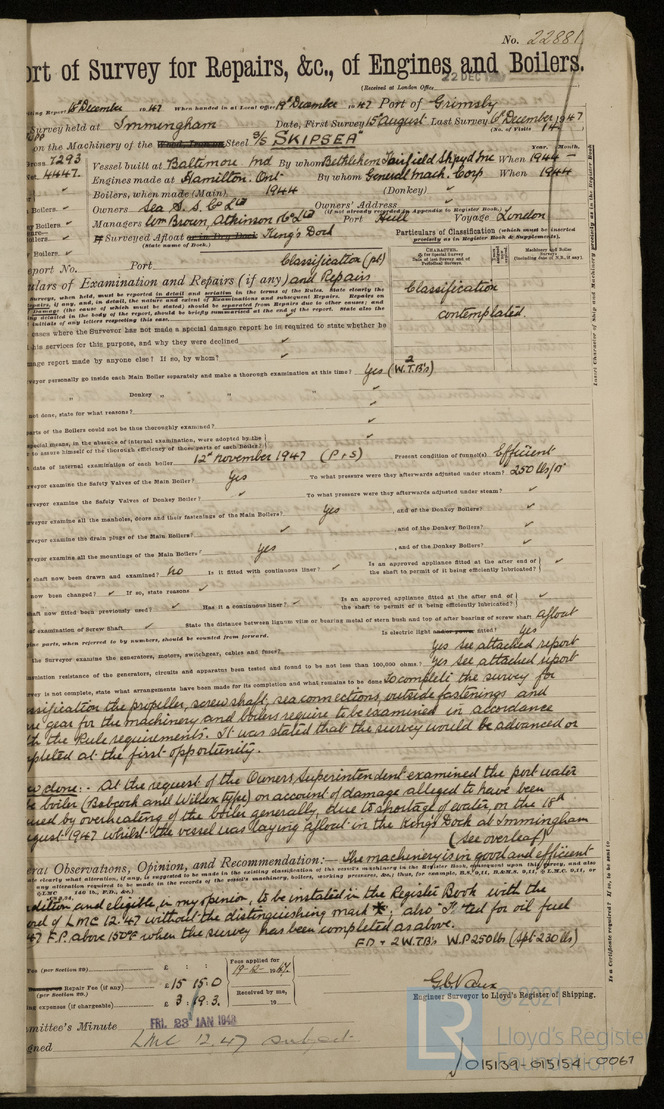 No. 22881
ort of Survey for Repairs, &c., of Engines and Boilers.
22 DEC
(Received at London Office
ting Report 16th December 1947 When handed in at Local Office 19th December 1947 Port of Grimsby
Survey held at Immingham Date, First Survey 15 August Last Survey 6 December 1947
(No. of Visits 14
on the Machinery of the Wood, Iron or Steel S/S "SKIPSEA"
Gross 7293 Vessel built at Baltimore Md By whom Bethlehem Fairfield Shpyd Inc When 1944 -
Year. Month.
Net 4447. Engines made at Hamilton. Ont. By whom General Mach. Corp When 1944
Boilers, when made (Main) 1944 (Donkey) ✓
Boilers. ✓ Owners Sea S. S. Co Ltd Owners' Address
(if not already recorded in Appendix to Register Book.)
Managers Wm Brown, Atkinson & Co Ltd Port Hull Voyage London
If Surveyed Afloat or in Dry Dock King's Dock
(State name of Dock.)
Particulars of Classification (which must be inserted precisely as in Register Book & Supplements).
Report No. Port Classification (pt)
ulars of Examination and Repairs (if any) and Repairs
Classification
contemplated.
cases where the Surveyor has not made a special damage report he is required to state whether he
his services for this purpose, and why they were declined ✓
mage report made by anyone else? If so, by whom? ✓
veyor personally go inside each Main Boiler separately and make a thorough examination at this time? Yes (2 W.T.B's)
" Donkey " " " ✓
not done, state for what reasons? ✓
parts of the Boilers could not be thus thoroughly examined? ✓
special means, in the absence of internal examination, were adopted by the
to assure himself of the thorough efficiency of those parts of each Boiler? ✓
date of internal examination of each boiler 12th November 1947 (P & S) Present condition of funnel(s) Efficient
veyor examine the Safety Valves of the Main Boiler? Yes To what pressure were they afterwards adjusted under steam? 250 lbs/□"
veyor examine the Safety Valves of Donkey Boiler? ✓ To what pressure were they afterwards adjusted under steam? ✓
veyor examine all the manholes, doors and their fastenings of the Main Boilers? Yes , and of the Donkey Boilers? ✓
veyor examine the drain plugs of the Main Boilers? ✓ , and of the Donkey Boilers? ✓
veyor examine all the mountings of the Main Boilers? Yes , and of the Donkey Boilers? ✓
shaft now been drawn and examined? No Is it fitted with continuous liner? ✓ Is an approved appliance fitted at the after end of the shaft to permit of it being efficiently lubricated? ✓
now been changed? ✓ If so, state reasons ✓
haft now fitted been previously used? ✓ Has it a continuous liner? ✓ Is an approved appliance fitted at the after end of the shaft to permit of it being efficiently lubricated? ✓
of examination of Screw Shaft ✓ State the distance between lignum vitæ or bearing metal of stern bush and top of after bearing of screw shaft Afloat
ine parts, when referred to by numbers, should be counted from forward. Is electric light and/or power fitted? Yes
the Surveyor examine the generators, motors, switchgear, cables and fuses? Yes see attached report
insulation resistance of the generators, circuits and apparatus been tested and found to be not less than 100,000 ohms? Yes see attached report
vey is not complete, state what arrangements have been made for its completion and what remains to be done To complete the survey for
ssification the propeller, screwshaft, sea connections, outside fastenings and
re gear for the machinery and boilers require to be examined in accordance
th the Rule requirements. It was stated that the survey would be advanced or
pleted at the first opportunity.
w done:- At the request of the Owners Superintendent examined the port water
e boiler (Babcock and Wilcox type) on account of damage alleged to have been
used by overheating of the boiler generally, due to shortage of water, on the 18th
ugust 1947 whilst the vessel was laying afloat in the King's Dock at Immingham
(See overleaf)
eral Observations, Opinion, and Recommendation:— The machinery is in good and efficient
dition and eligible, in my opinion, to be instated in the Register Book with the
ord of LMC 12.47 without the distinguishing mark ✠; also "Fitted for oil fuel
47 F.P. above 150°F when the survey has been completed as above.
F.D & 2 W.T.B's W.P 250 lbs (Spt. 230 lbs)
Fee (per Section 29) £ : :
Repair Fee (if any) £15 15.0
(per Section 29.)
ing expenses (if chargeable) £ 3.19.3.
Fees applied for
19-12-1947
Received by me,
19
Engineer Surveyor to Lloyd's Register of Shipping.
mmittee's Minute FRI. 23 JAN 1948
gned LMC 12.47 subject
Insert Character of Ship and Machinery precisely as in the Register Book
Is a Certificate required? If so, to be sent to
© 2021
LR
Lloyd's Register
Foundation
015139-015154-0067